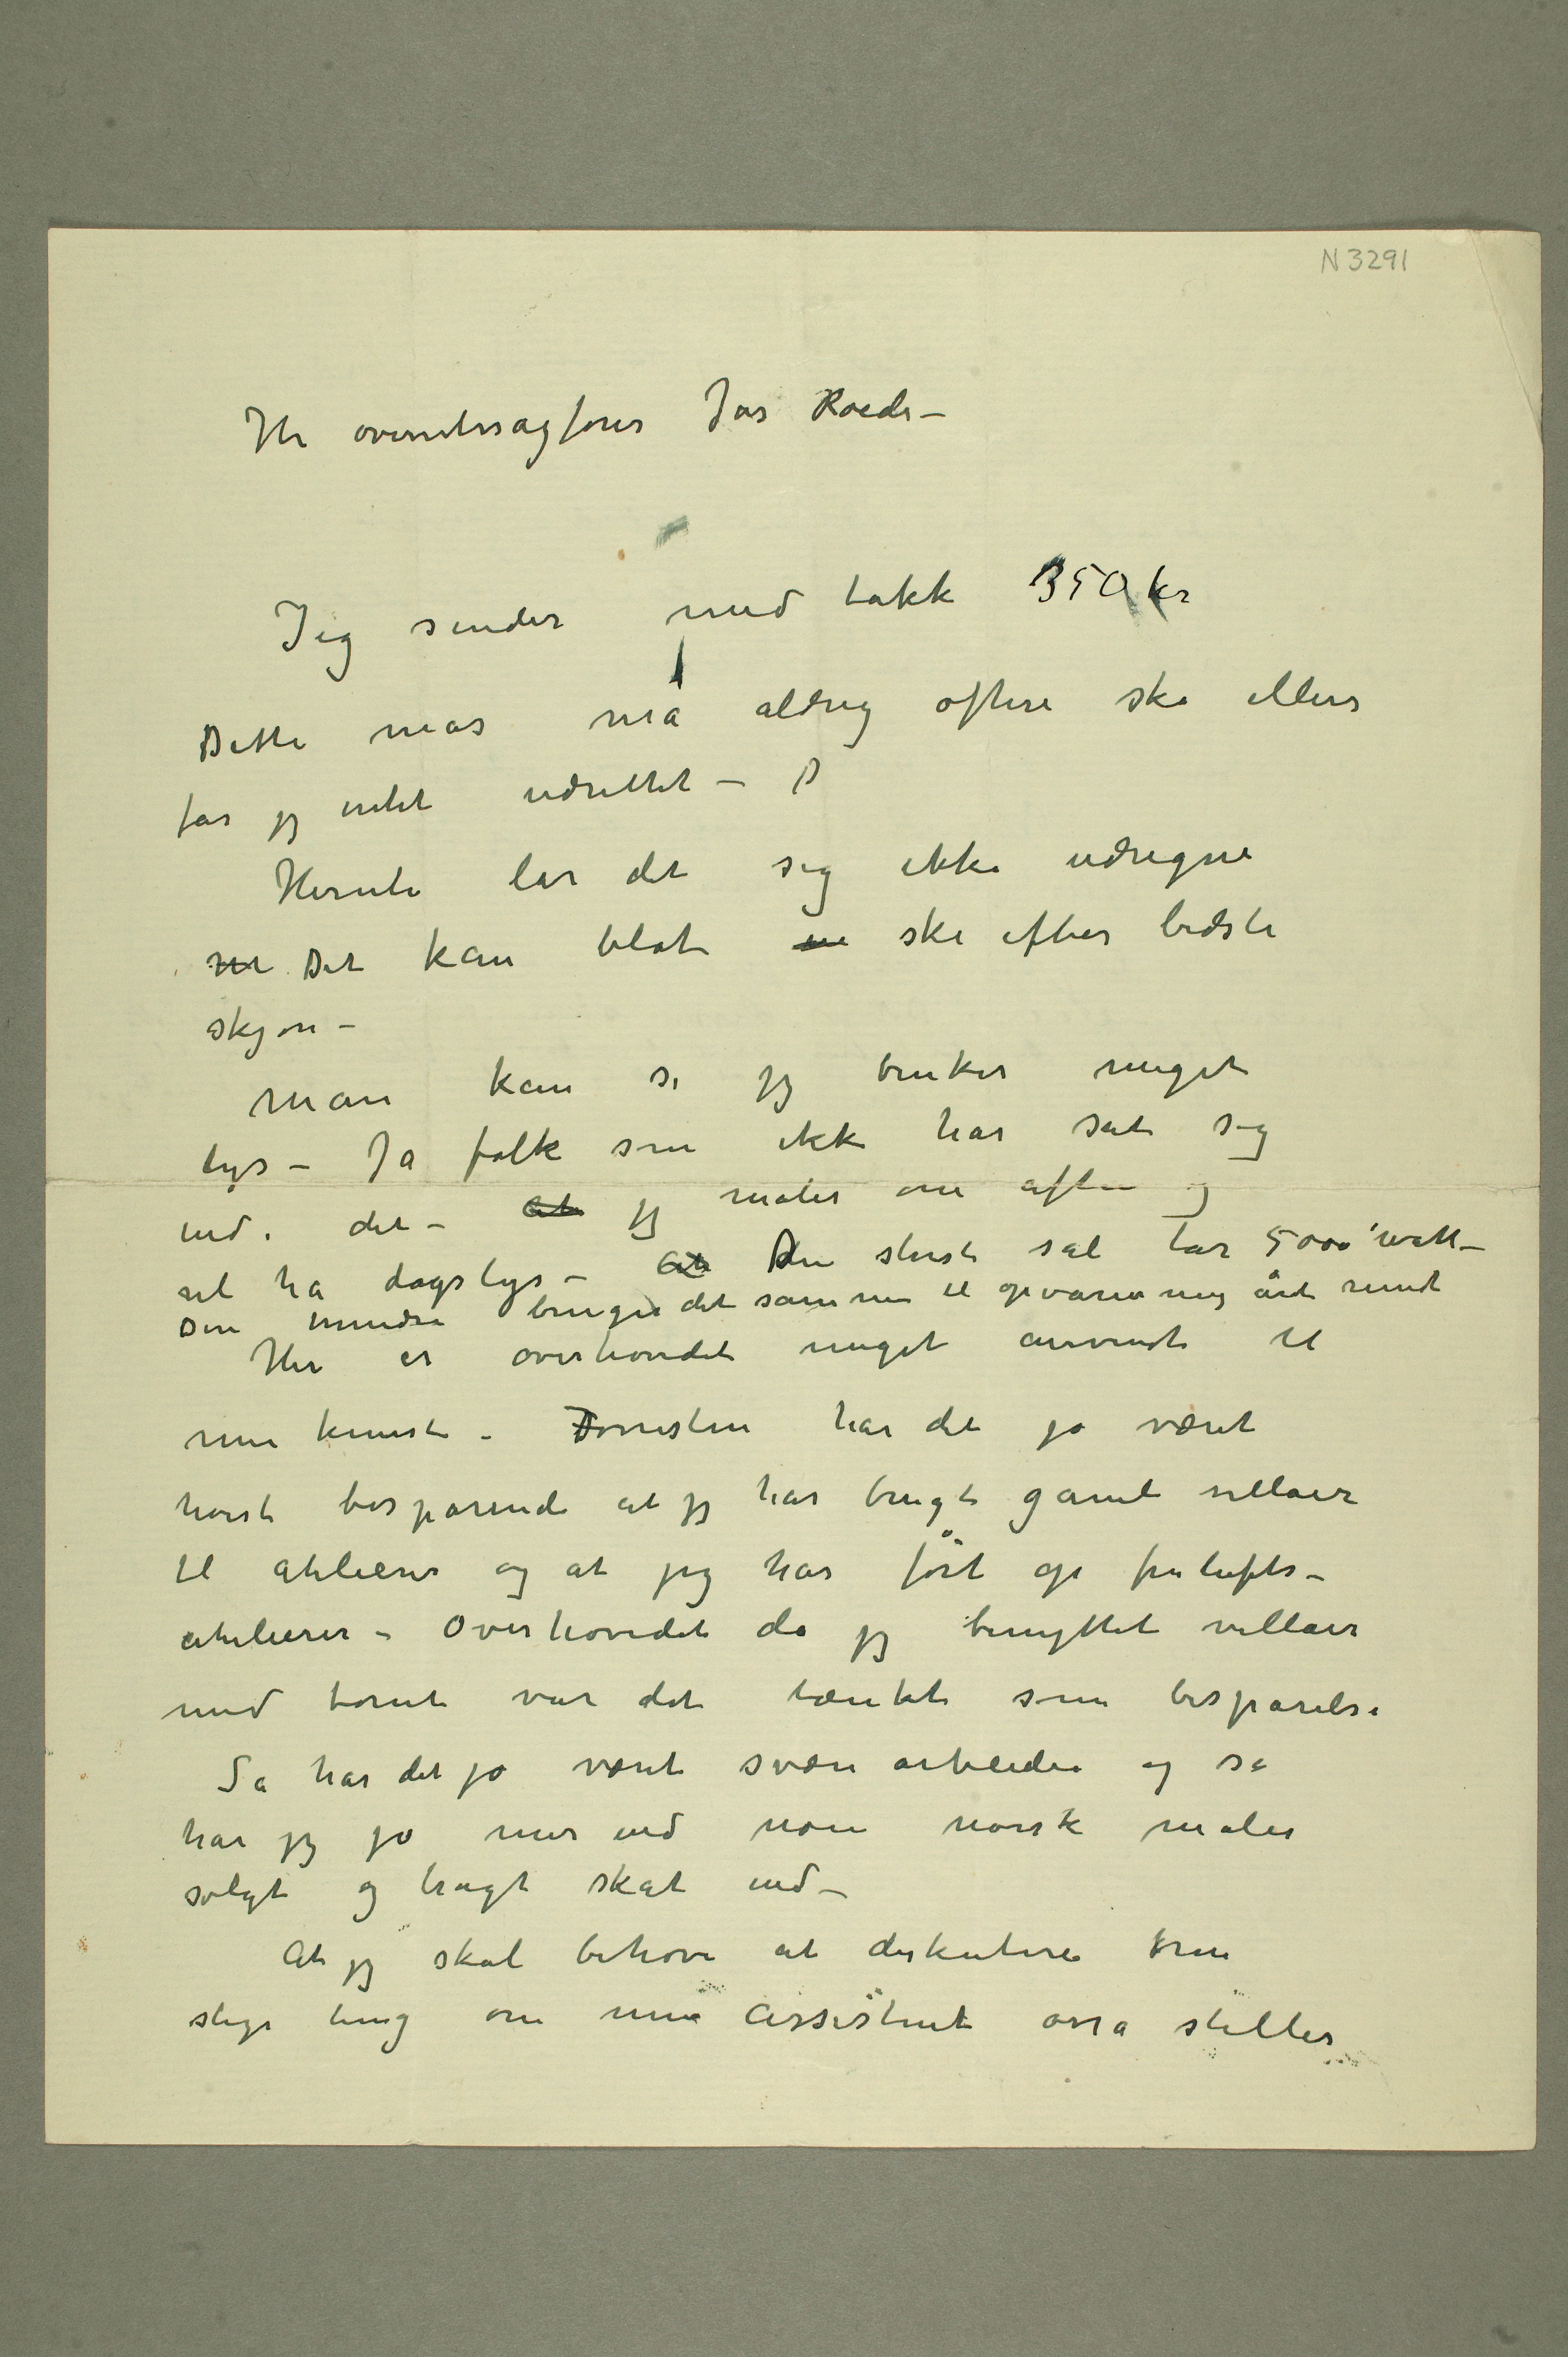 N 3291
Hr overretssagfører Johs Roede –
Jeg sender med takk 350 kr
Dette mas må aldrig oftere ske ellers
får jeg intet udrettet – D
Herute lar det sig ikke udregne
Det kan blot ske efter bedste
skjøn –
Man kan si jeg bruker meget
lys – Ja folk som ikke har sat sig
ind i det – at jeg maler om aften og
vil ha dagslys – At Den største sal tar 5000 watt –
Den mindre bruger det samme til opvarmning året rundt
Her er overhovedet meget anvendt til
min kunst – Forresten har det jo været
høist besparende at jeg har brugt gamle villaer
til atelierer og at jeg har ført op frilufts-
atelierer – Overhovedet da jeg benyttet villaer
med tomt var det tænkt som besparelse
Så har det jo været svære arbeider og så
har jeg jo mer end noen norsk maler
solgt og bragt skat ind –
At jeg skal behøve at diskutere om
slige ting om min assistent osså stiller